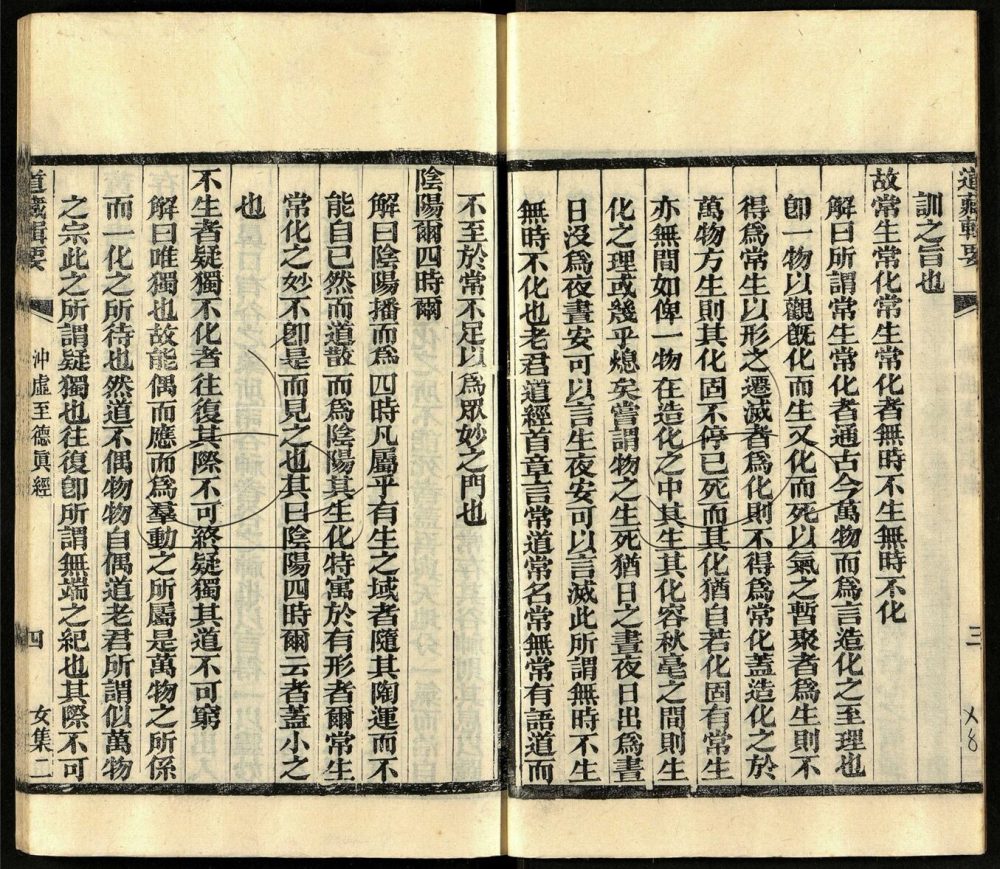 道藏輯要
三
訓之旨也
故常生常化常生常化者無時不生無時不化
解曰所謂常生常化者通古今萬物而爲言造化之至理也
卽一物以觀旣化而生又化而死以氣之暫聚者爲生則不
得爲常生以形之遷滅者爲化則不得爲常化蓋造化之於
萬物方生則其化固不停已死而其化猶自若化固有常生
亦無間如俾一物在造化之中其生其化容秋毫之間則生
化之理或幾乎熄矣嘗謂物之生死猶日之晝夜日出爲晝
日沒爲夜晝安可以言生夜安可以言滅此所謂無時不生
無時不化也老君道經首章言常道常名常無常有語道而
不至於常不足以爲眾妙之門也
陰陽爾四時爾
解曰陰陽播而爲四時凡屬乎有生之域者隨其陶運而不
能自已然而道散而爲陰陽其生化特寓於有形者爾常生
常化之妙不卽是而見之也其曰陰陽四時爾云者蓋小之
也
不生者疑獨不化者往復其際不可終疑獨其道不可窮
解曰唯獨也故能偶而應而爲羣動之所屬是萬物之所係
而一化之所待也然道不偶物物自偶道老君所謂似萬物
之宗此之所謂疑獨也往復卽所謂無端之紀也其際不可
道藏輯要
沖虛至德眞經
四
女集二